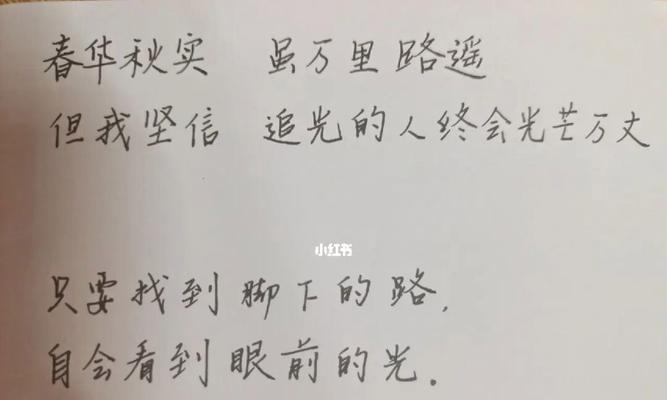 春华秋实 虽万里路遥
但我坚信 追光的人终会光芒万丈
小红书
只要找到脚下的路,
自会看到眼前的光.